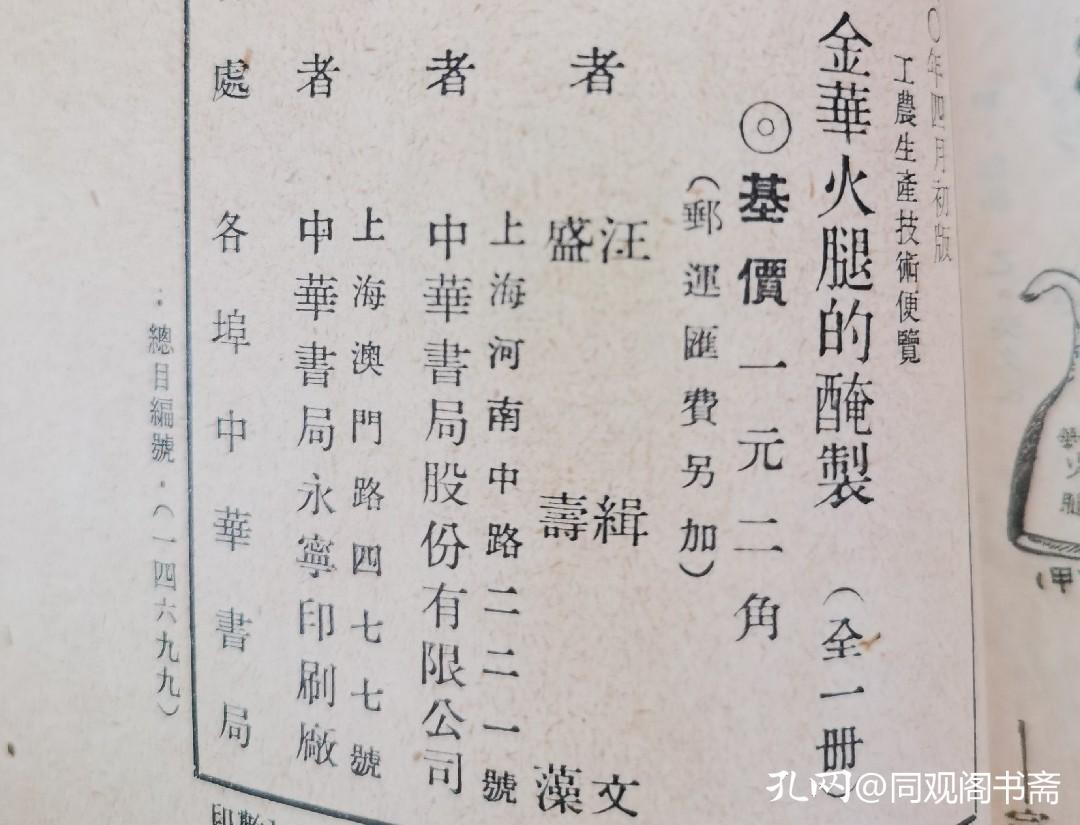 〇年四月初版
工農生產技術便覽
金華火腿的醃製（全一冊）
◎基價一元二角
（郵運匯費另加）
者 汪緝文
盛壽藻
上海河南中路二二一號
者 中華書局股份有限公司
上海澳門路四七七號
者 中華書局永寧印刷廠
處 各埠中華書局
總目編號．（一四六九九）
孔网@同观阁书斋